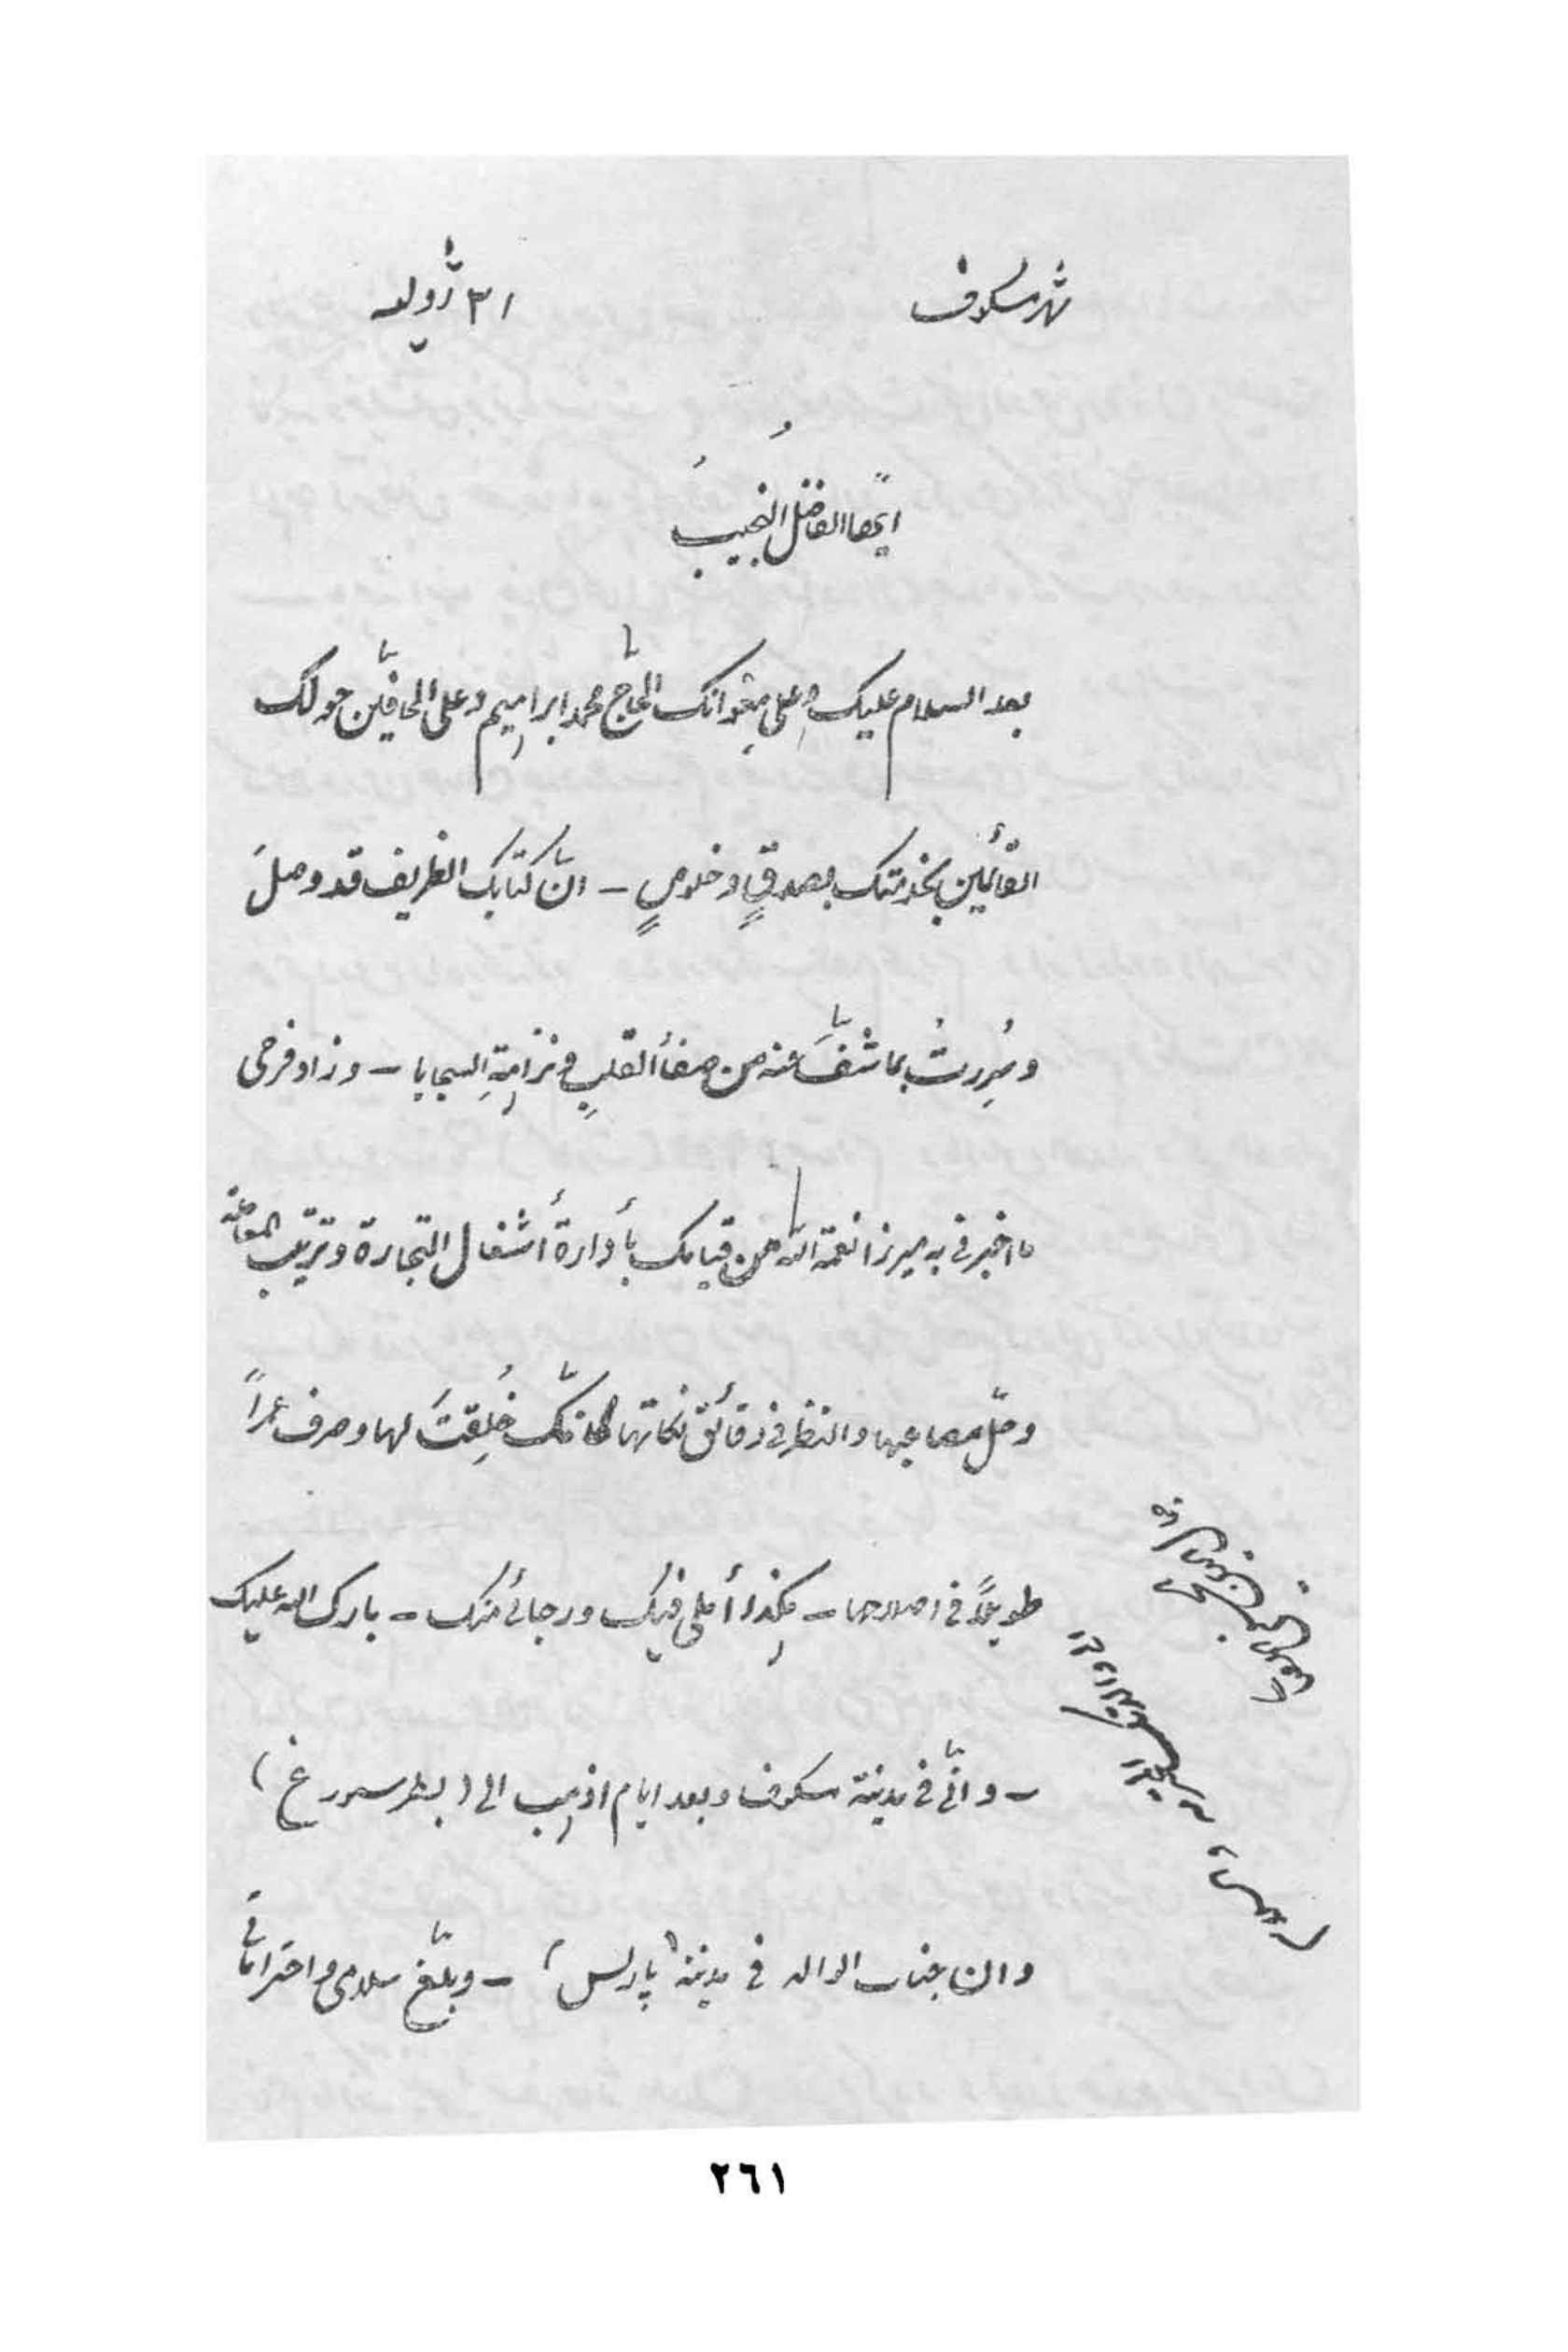 شهر مسكوف ٣١ ژوليه
ايّها الفاضلُ النجيبُ
بعد السلام عليك وعلى إخوانك الحاجّ محمد ابراهيم وعلى الحافّين حولك
القائمين بخدمتك بصدقٍ وخلوصٍ - انّ كتابك الظريف قد وصلَ
وسُرِرتُ بما شفَّ عنه من صفاء القلبِ ونزاهةِ السجايا - وزاد فرحى
ما اخبرنى به ميرزا نعمة الله من قيامك بأدارة أشغال التجارة وترتيب
وحلّ مصاعبها والنظر فى دقائق نكاتها كانّك خُلِقتَ لها وصرف عمراً
طويلاً فى اصلاحها - هكذا أملى فيك ورجائى منك - بارك الله عليك
- وانّى فى مدينة مسكوف وبعد ايام اذهب الى (بطرسبورغ)
وان جناب الوالد فى مدينة (پاريس) - وبلّغ سلامى واحتراماتى
٢٦١